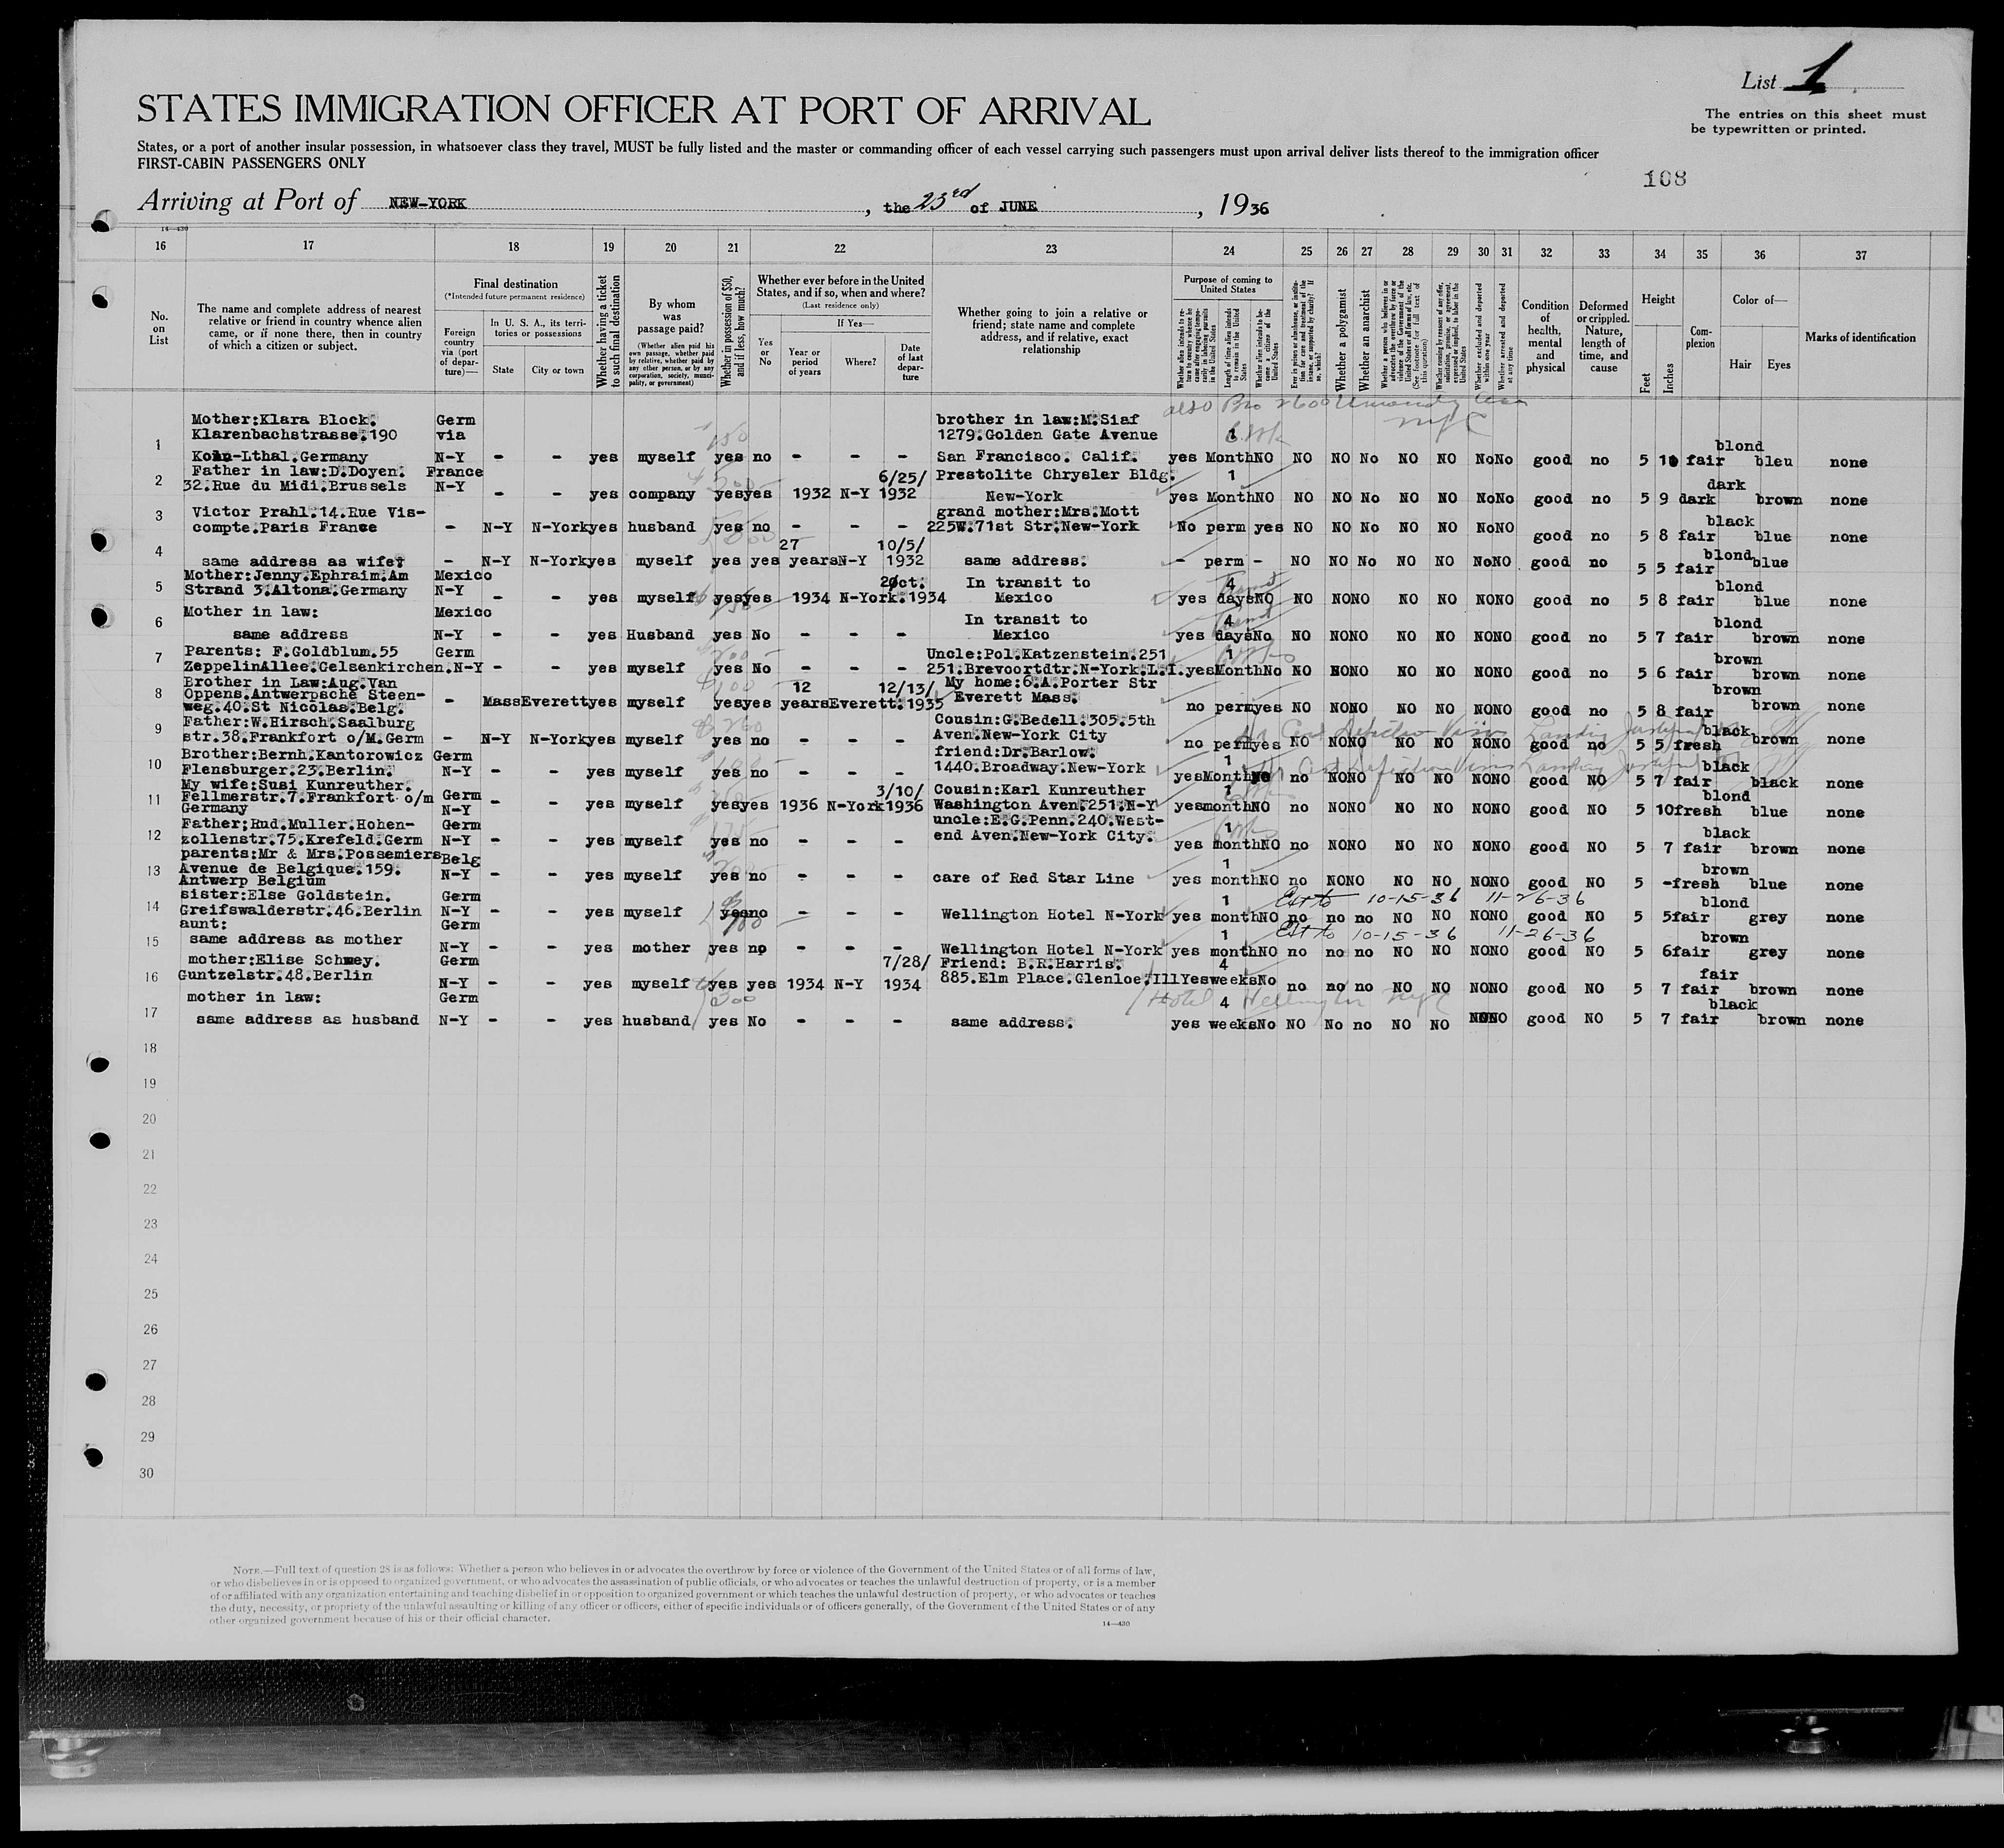 List 1
STATES IMMIGRATION OFFICER AT PORT OF ARRIVAL
The entries on this sheet must
be typewritten or printed.
States, or a port of another insular possession, in whatsoever class they travel, MUST be fully listed and the master or commanding officer of each vessel carrying such passengers must upon arrival deliver lists thereof to the immigration officer
FIRST-CABIN PASSENGERS ONLY
108
Arriving at Port of NEW-YORK, the 23rd of JUNE, 1936
14—430
16 17 18 19 20 21 22 23 24 25 26 27 28 29 30 31 32 33 34 35 36 37
No. on List
The name and complete address of nearest relative or friend in country whence alien came, or if none there, then in country of which a citizen or subject.
Final destination
(*Intended future permanent residence)
Foreign country via (port of departure)—
In U. S. A., its territories or possessions
State City or town
Whether having a ticket to such final destination
By whom was passage paid?
(Whether alien paid his own passage, whether paid by relative, whether paid by any other person, or by any corporation, society, municipality, or government)
Whether in possession of $50, and if less, how much?
Whether ever before in the United States, and if so, when and where?
(Last residence only)
Yes or No
If Yes—
Year or period of years
Where?
Date of last departure
Whether going to join a relative or friend; state name and complete address, and if relative, exact relationship
Purpose of coming to United States
Length of time alien intends to remain in the United States
Whether alien intends to become a citizen of the United States
Whether a polygamist
Whether an anarchist
Whether excluded and deported within one year
Whether arrested and deported at any time
Condition of health, mental and physical
Deformed or crippled. Nature, length of time, and cause
Height
Feet Inches
Complexion
Color of—
Hair Eyes
Marks of identification
also Bro 2600
Mother:Klara Block. Germ brother in law:M.Siaf
Klarenbachstrasse.190 via 1279.Golden Gate Avenue 1 blond
1 Koln-Lthal.Germany N-Y - - yes myself yes no - - - San Francisco. Calif. yes Month NO NO NO No NO NO No No good no 5 10 fair bleu none
Father in law:D.Doyen. France 6/25/ Prestolite Chrysler Bldg. 1 dark
2 32.Rue du Midi.Brussels N-Y - - yes company yes yes 1932 N-Y 1932 New-York yes Month NO NO NO No NO NO No No good no 5 9 dark brown none
Victor Prahl.14.Rue Vis- grand mother:Mrs.Mott black
3 compte.Paris France - N-Y N-York yes husband yes no - - - 225W.71st Str.New-York No perm yes NO NO No NO NO No NO good no 5 8 fair blue none
27 10/5/ blond
4 same address as wife. - N-Y N-York yes myself yes yes years N-Y 1932 same address. - perm - NO NO No NO NO No NO good no 5 5 fair blue
Mother:Jenny.Ephraim.Am Mexico Oct. In transit to 4 blond
5 Strand 3.Altona.Germany N-Y - - yes myself yes yes 1934 N-York. 1934 Mexico yes days NO NO NO NO NO NO NO NO good no 5 8 fair blue none
Mother in law: Mexico In transit to 4 blond
6 same address N-Y - - yes Husband yes No - - - Mexico yes days No NO NO NO NO NO NO NO good no 5 7 fair brown none
Parents: F.Goldblum.55 Germ Uncle:Pol.Katzenstein.251 1 brown
7 ZeppelinAllee.Gelsenkirchen.N-Y - - yes myself yes No - - - 251.Brevoortdtr.N-York.L.I. yes Month No NO NO NO NO NO NO NO good no 5 6 fair brown none
Brother in Law:Aug.Van 12 12/13/ My home:6.A.Porter Str brown
8 Oppens.Antwerpsche Steen- - Mass Everett yes myself yes yes years Everett. 1935 Everett Mass. no perm yes NO NO NO NO NO NO NO good no 5 8 fair brown none
weg.40.St Nicolas.Belg.
Father:W.Hirsch.Saalburg Cousin:G.Bedell.305.5th black
9 str.38.Frankfort o/M.Germ - N-Y N-York yes myself yes no - - - Aven.New-York City no perm yes NO NO NO NO NO NO NO good no 5 5 fresh brown none
Brother:Bernh.Kantorowicz Germ friend:Dr.Barlow. 1 black
10 Flensburger.23.Berlin. N-Y - - yes myself yes no - - - 1440.Broadway.New-York yes Month no NO NO NO NO NO NO good NO 5 7 fair black none
My wife:Susi Kunreuther. Germ 3/10/ Cousin:Karl Kunreuther 1 blond
11 Fellmerstr.7.Frankfort o/m N-Y - - yes myself yes yes 1936 N-York 1936 Washington Aven.251.N-Y yes month NO no NO NO NO NO NO NO good NO 5 10 fresh blue none
Germany
Father;Rud.Muller.Hohen- Germ uncle:E.G.Penn.240.West- 1 black
12 zollenstr.75.Krefeld.Germ N-Y - - yes myself yes no - - - end Aven.New-York City. yes month NO no NO NO NO NO NO NO good NO 5 7 fair brown none
parents:Mr & Mrs.Possemiers Belg 1 brown
13 Avenue de Belgique.159. N-Y - - yes myself yes no - - - care of Red Star Line yes month NO no NO NO NO NO NO NO good NO 5 - fresh blue none
Antwerp Belgium
sister:Else Goldstein. Germ 1 Ext to 10-15-36 11-26-36 blond
14 Greifswalderstr.46.Berlin N-Y - - yes myself yes no - - - Wellington Hotel N-York yes month NO no no no NO NO NO NO good NO 5 5 fair grey none
aunt: Germ 1 Ext to 10-15-36 11-26-36 brown
15 same address as mother N-Y - - yes mother yes no - - - Wellington Hotel N-York yes month NO no no no NO NO NO NO good NO 5 6 fair grey none
mother:Elise Schwey. Germ 7/28/ Friend: B.R.Harris. 4 fair
16 Guntzelstr.48.Berlin N-Y - - yes myself yes yes 1934 N-Y 1934 885.Elm Place.Glenloe.Ill Yes weeks No no no no NO NO NO NO good NO 5 7 fair brown none
mother in law: Germ Hotel Wellington NYC 4 black
17 same address as husband N-Y - - yes husband yes No - - - same address. yes weeks No NO No no NO NO NO NO good NO 5 7 fair brown none
18
19
20
21
22
23
24
25
26
27
28
29
30
NOTE.—Full text of question 28 is as follows: Whether a person who believes in or advocates the overthrow by force or violence of the Government of the United States or of all forms of law,
or who disbelieves in or is opposed to organized government, or who advocates the assassination of public officials, or who advocates or teaches the unlawful destruction of property, or is a member
of or affiliated with any organization entertaining and teaching disbelief in or opposition to organized government or which teaches the unlawful destruction of property, or who advocates or teaches
the duty, necessity, or propriety of the unlawful assaulting or killing of any officer or officers, either of specific individuals or of officers generally, of the Government of the United States or of any
other organized government because of his or their official character.
14—430